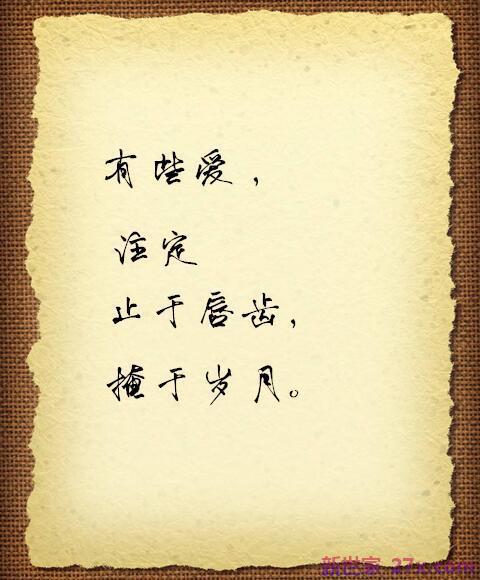 有些爱，
注定
止于唇齿，
掩于岁月。
新世家 27x.com